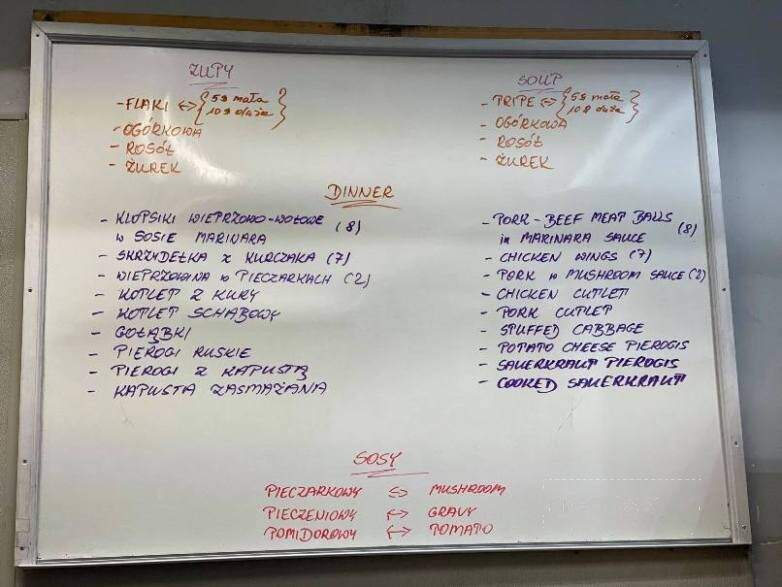 ZUPY
- FLAKI <-> { 5$ mała
10$ duża }
- OGÓRKOWA
- ROSÓŁ
- ŻUREK
SOUP
- TRIPE <-> { 5$ mała
10$ duża }
- OGÓRKOWA
- ROSÓŁ
- ŻUREK
DINNER
- KLOPSIKI WIEPRZOWO-WOŁOWE (8)
w SOSIE MARINARA
- SKRZYDEŁKA Z KURCZAKA (7)
- WIEPRZOWINA w PIECZARKACH (2)
- KOTLET Z KURY
- KOTLET SCHABOWY
- GOŁĄBKI
- PIEROGI RUSKIE
- PIEROGI Z KAPUSTĄ
- KAPUSTA ZASMAŻANA
- PORK - BEEF MEAT BALLS (8)
in MARINARA SAUCE
- CHICKEN WINGS (7)
- PORK w MUSHROOM SAUCE (2)
- CHICKEN CUTLET
- PORK CUTLET
- STUFFED CABBAGE
- POTATO CHEESE PIEROGIS
- SAUERKRAUT PIEROGIS
- COOKED SAUERKRAUT
SOSY
PIECZARKOWY <-> MUSHROOM
PIECZENIOWY <-> GRAVY
POMIDOROWY <-> TOMATO